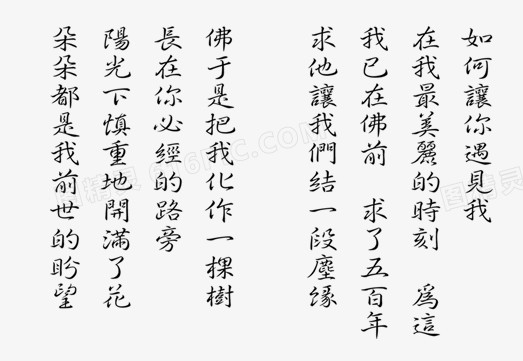 如何讓你遇見我
在我最美麗的時刻 爲這
我已在佛前 求了五百年
求他讓我們结一段塵緣
佛于是把我化作一棵樹
長在你必經的路旁
陽光下慎重地開滿了花
朵朵都是我前世的盼望